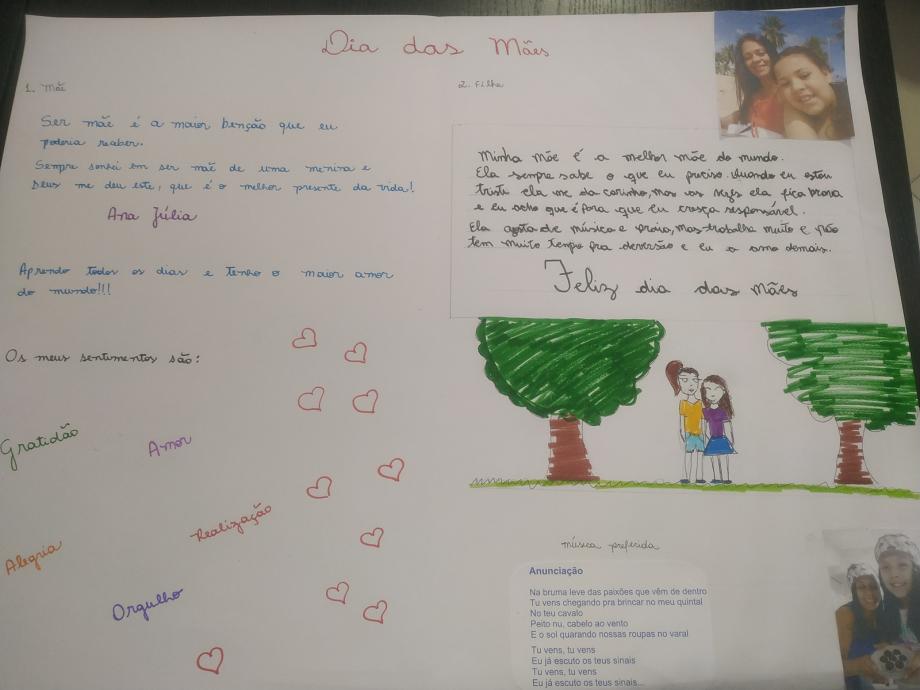 Dia das Mães
1. Mãe
Ser mãe é a maior benção que eu
poderia receber.
Sempre sonhei em ser mãe de uma menina e
Deus me deu este, que é o melhor presente da vida!
Ana Júlia
Aprendo todos os dias e tenho o maior amor
do mundo!!!
Os meus sentimentos são:
Gratidão
Amor
Realização
Alegria
Orgulho
2. Filha
Minha mãe é a melhor mãe do mundo.
Ela sempre sabe o que eu preciso. Quando eu estou
triste ela me da carinho, mas as vezes ela fica brava
e eu acho que é para que eu cresça responsável.
Ela gosta de música e praia, mas trabalha muito e não
tem muito tempo pra diversão e eu a amo demais.
Feliz dia das Mães
música preferida
Anunciação
Na bruma leve das paixões que vêm de dentro
Tu vens chegando pra brincar no meu quintal
No teu cavalo
Peito nu, cabelo ao vento
E o sol quarando nossas roupas no varal
Tu vens, tu vens
Eu já escuto os teus sinais
Tu vens, tu vens
Eu já escuto os teus sinais...